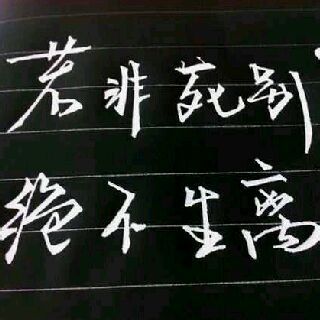 若非死别
绝不生离